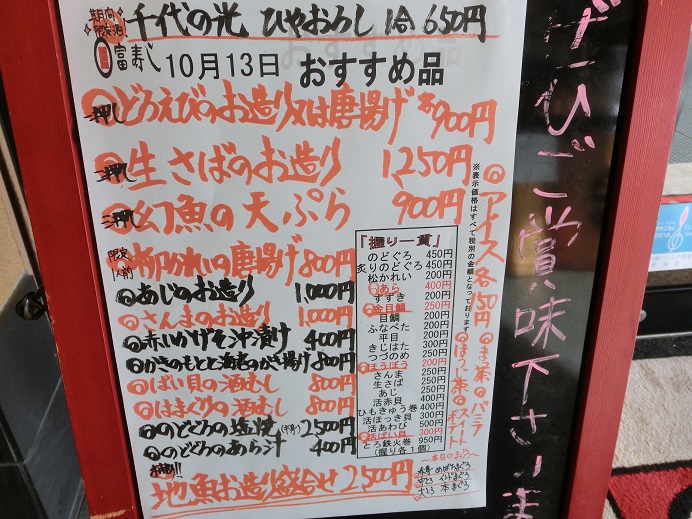 期間限定酒! 千代の光 ひやおろし 1合 650円
富寿し 10月13日 おすすめ品
一押し どろえびのお造り又は唐揚げ 各900円
二押し 生さばのお造り 1,250円
三押し 幻魚の天ぷら 900円
限定 柳かれいの唐揚げ 800円
あじのお造り 1,000円
さんまのお造り 1,000円
赤いかげそ沖漬け 400円
かきのもとと海老のかき揚げ 800円
ばい貝の酒むし 800円
はまぐりの酒むし 800円
のどぐろの塩焼(半身) 2,500円
のどぐろのあら汁 400円
地魚お造り盛合せ 2,500円
「握り一貫」
のどぐろ 450円
炙りのどぐろ 450円
松かれい 200円
あら 400円
すずき 200円
金目鯛 250円
目鯛 200円
ふなべた 200円
平目 200円
きじはた 300円
つづのめ 250円
ほうぼう 200円
さんま 250円
生さば 250円
あじ 250円
活赤貝 400円
ひもきゅう巻 400円
活ほっき貝 300円
活あわび 500円
活ばい貝 300円
とろ鉄火巻 950円
(握り各1個)
※表示価格はすべて税別の金額となっております
アイス各150円
ま茶 バニラ
ほうじ茶 スイートポテト
〜本日のまぐろ〜
赤身 めばちまぐろ
中とろ インドまぐろ
大とろ 本まぐろ
ぜひご賞味下さいま